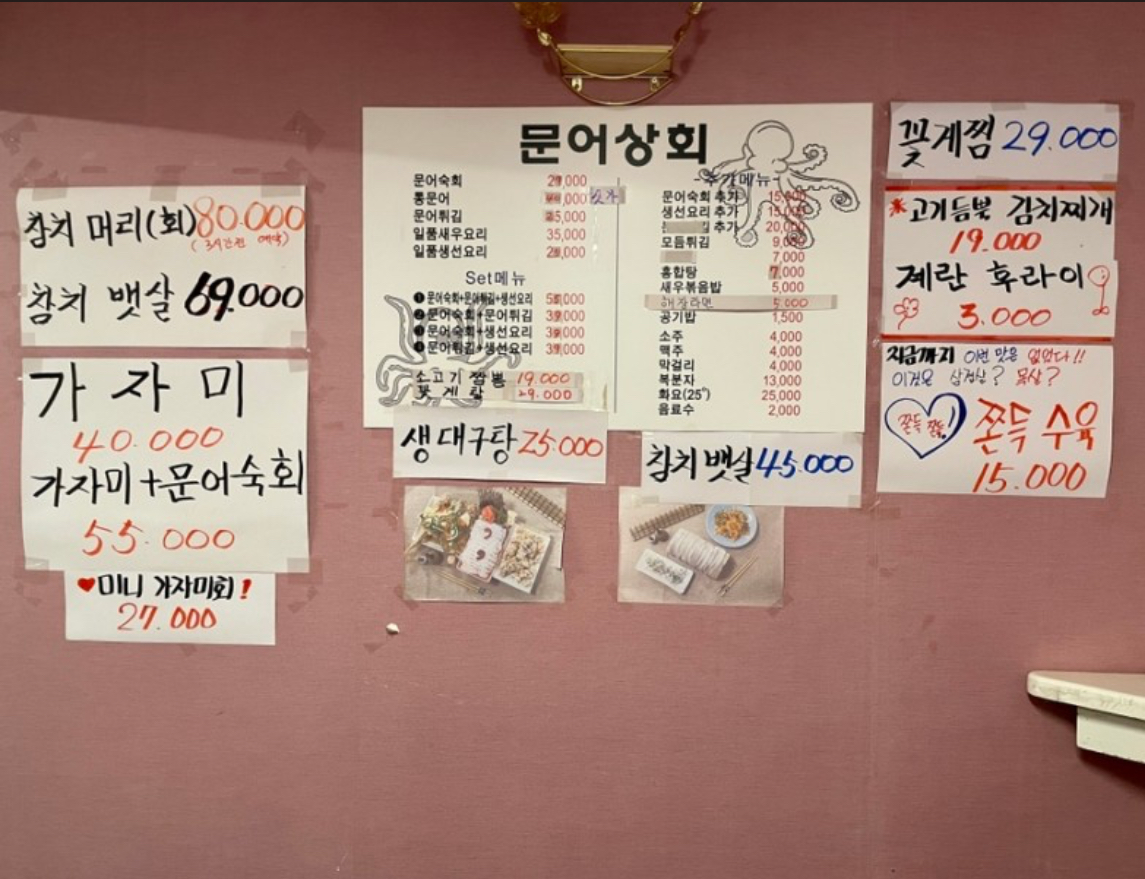 참치 머리(회) 80.000
(3시간전 예약)
참치 뱃살 69.000
가자미
40.000
가자미+문어숙회
55.000
♥미니 가자미회!
27.000
문어상회
문어숙회
통문어 싯가
문어튀김
일품새우요리 35,000
일품생선요리
Set메뉴
❶ 문어숙회+문어튀김+생선요리
❷ 문어숙회+문어튀김
문어숙회+생선요리
문어튀김+생선요리
소고기 짬뽕 19.000
꽃게탕 29.000
추가메뉴
문어숙회 추가 15,000
생선요리 추가 15,000
추가 20,000
모듬튀김 9,000
7,000
홍합탕 7,000
새우볶음밥 5,000
해장라면 5,000
공기밥 1,500
소주 4,000
맥주 4,000
막걸리 4,000
복분자 13,000
화요(25°) 25,000
음료수 2,000
생대구탕 25.000
참치뱃살 45.000
꽃게찜 29.000
고기듬뿍 김치찌개
19.000
계란 후라이
3.000
지금까지 이런 맛은 없었다!!
이것은 삼겹살? 목살?
쫀득 쫀득!
쫀득 수육
15.000